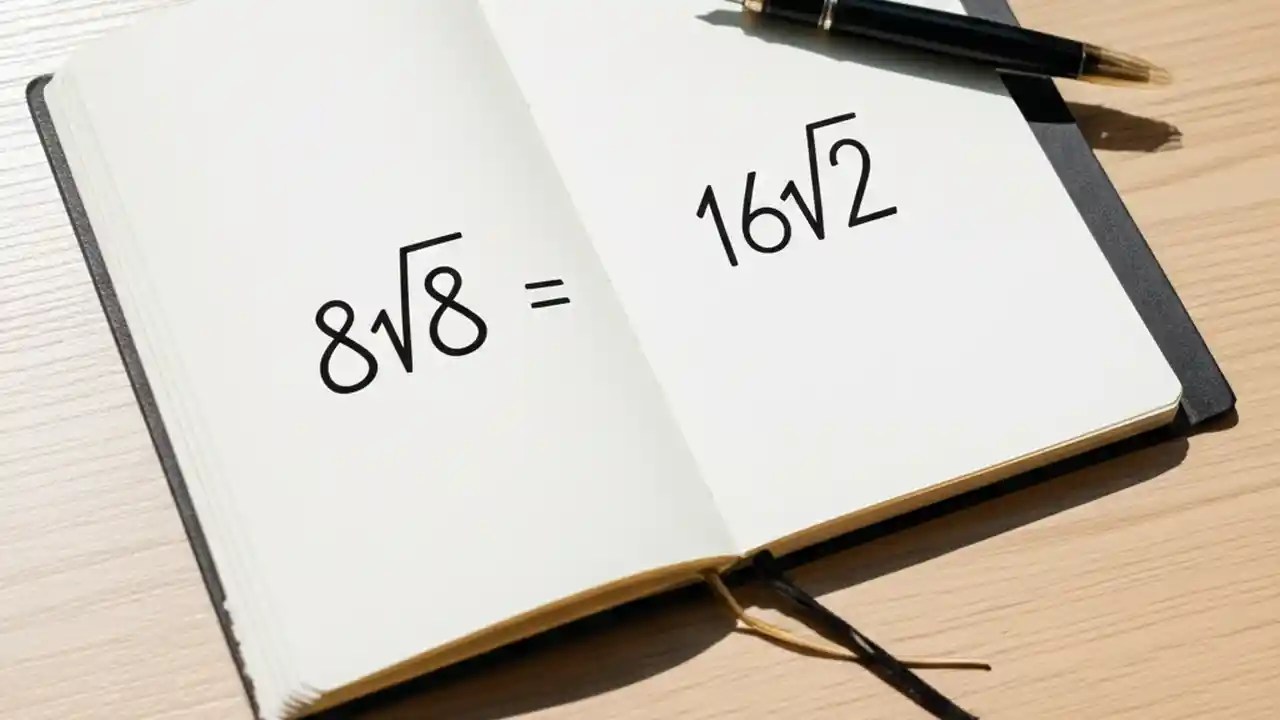 8√8 = 16√2